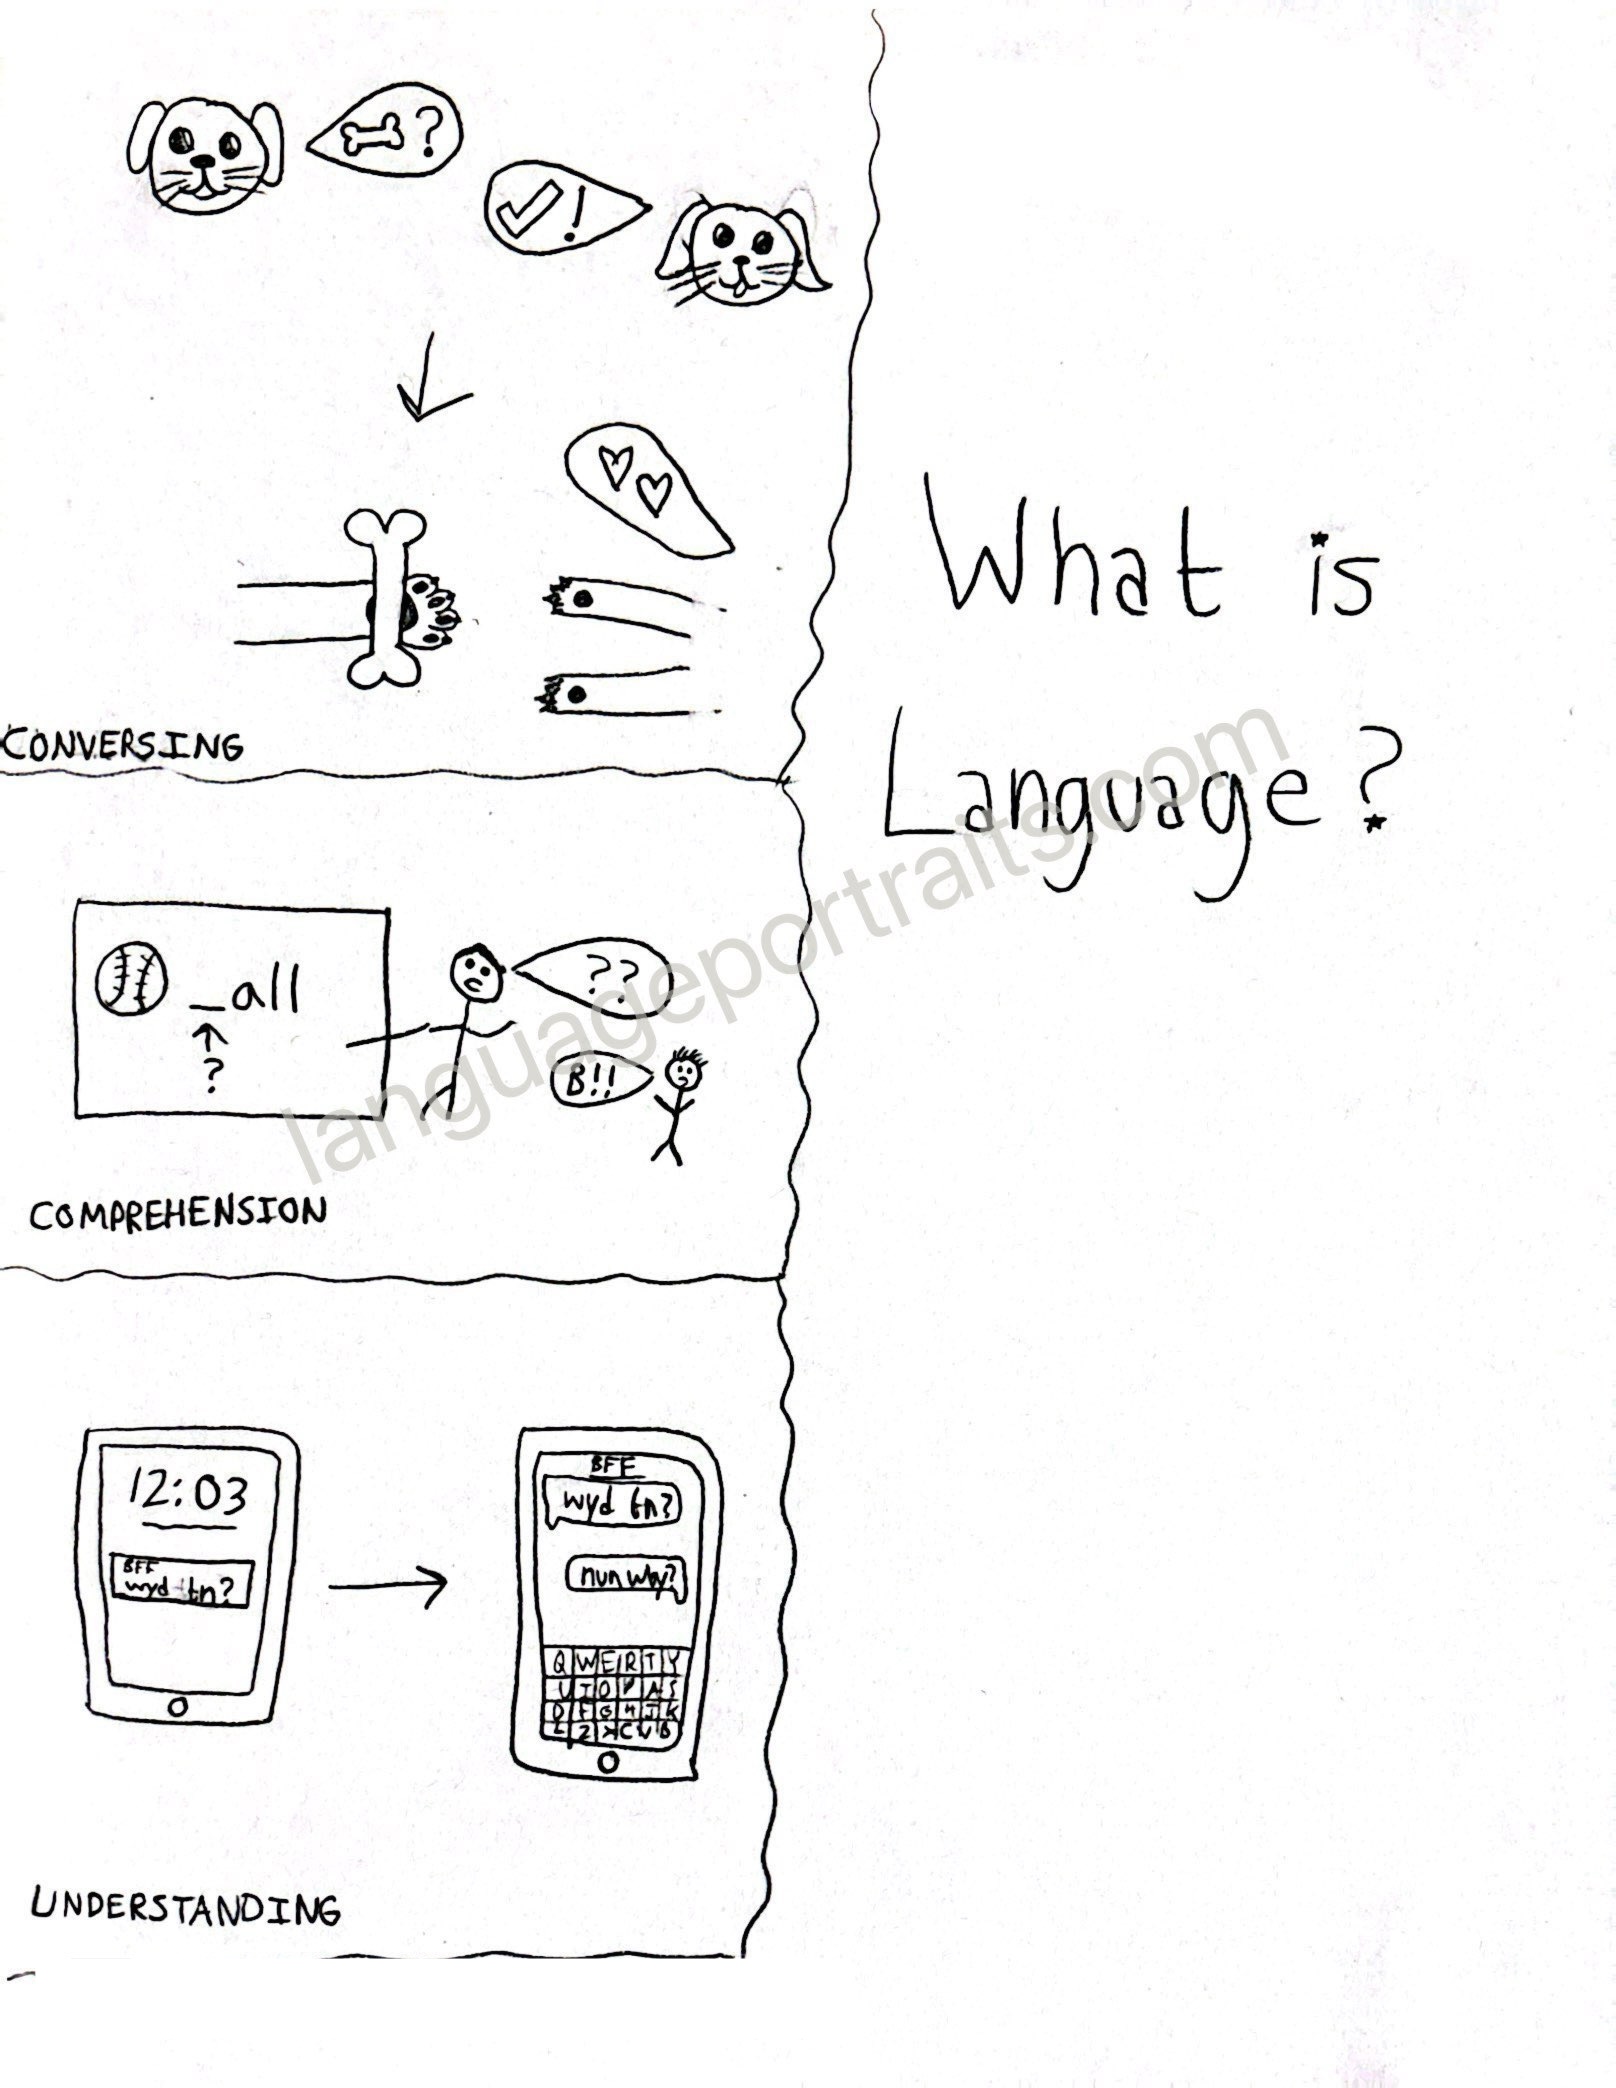 ?
!
CONVERSING
_all
?
??
B!!
COMPREHENSION
12:03
BFF
wyd tn?
BFF
wyd tn?
nun why?
QWERTY
UIOPAS
DFGHJK
LZXCVB
UNDERSTANDING
What is
Language?
languageportraits.com